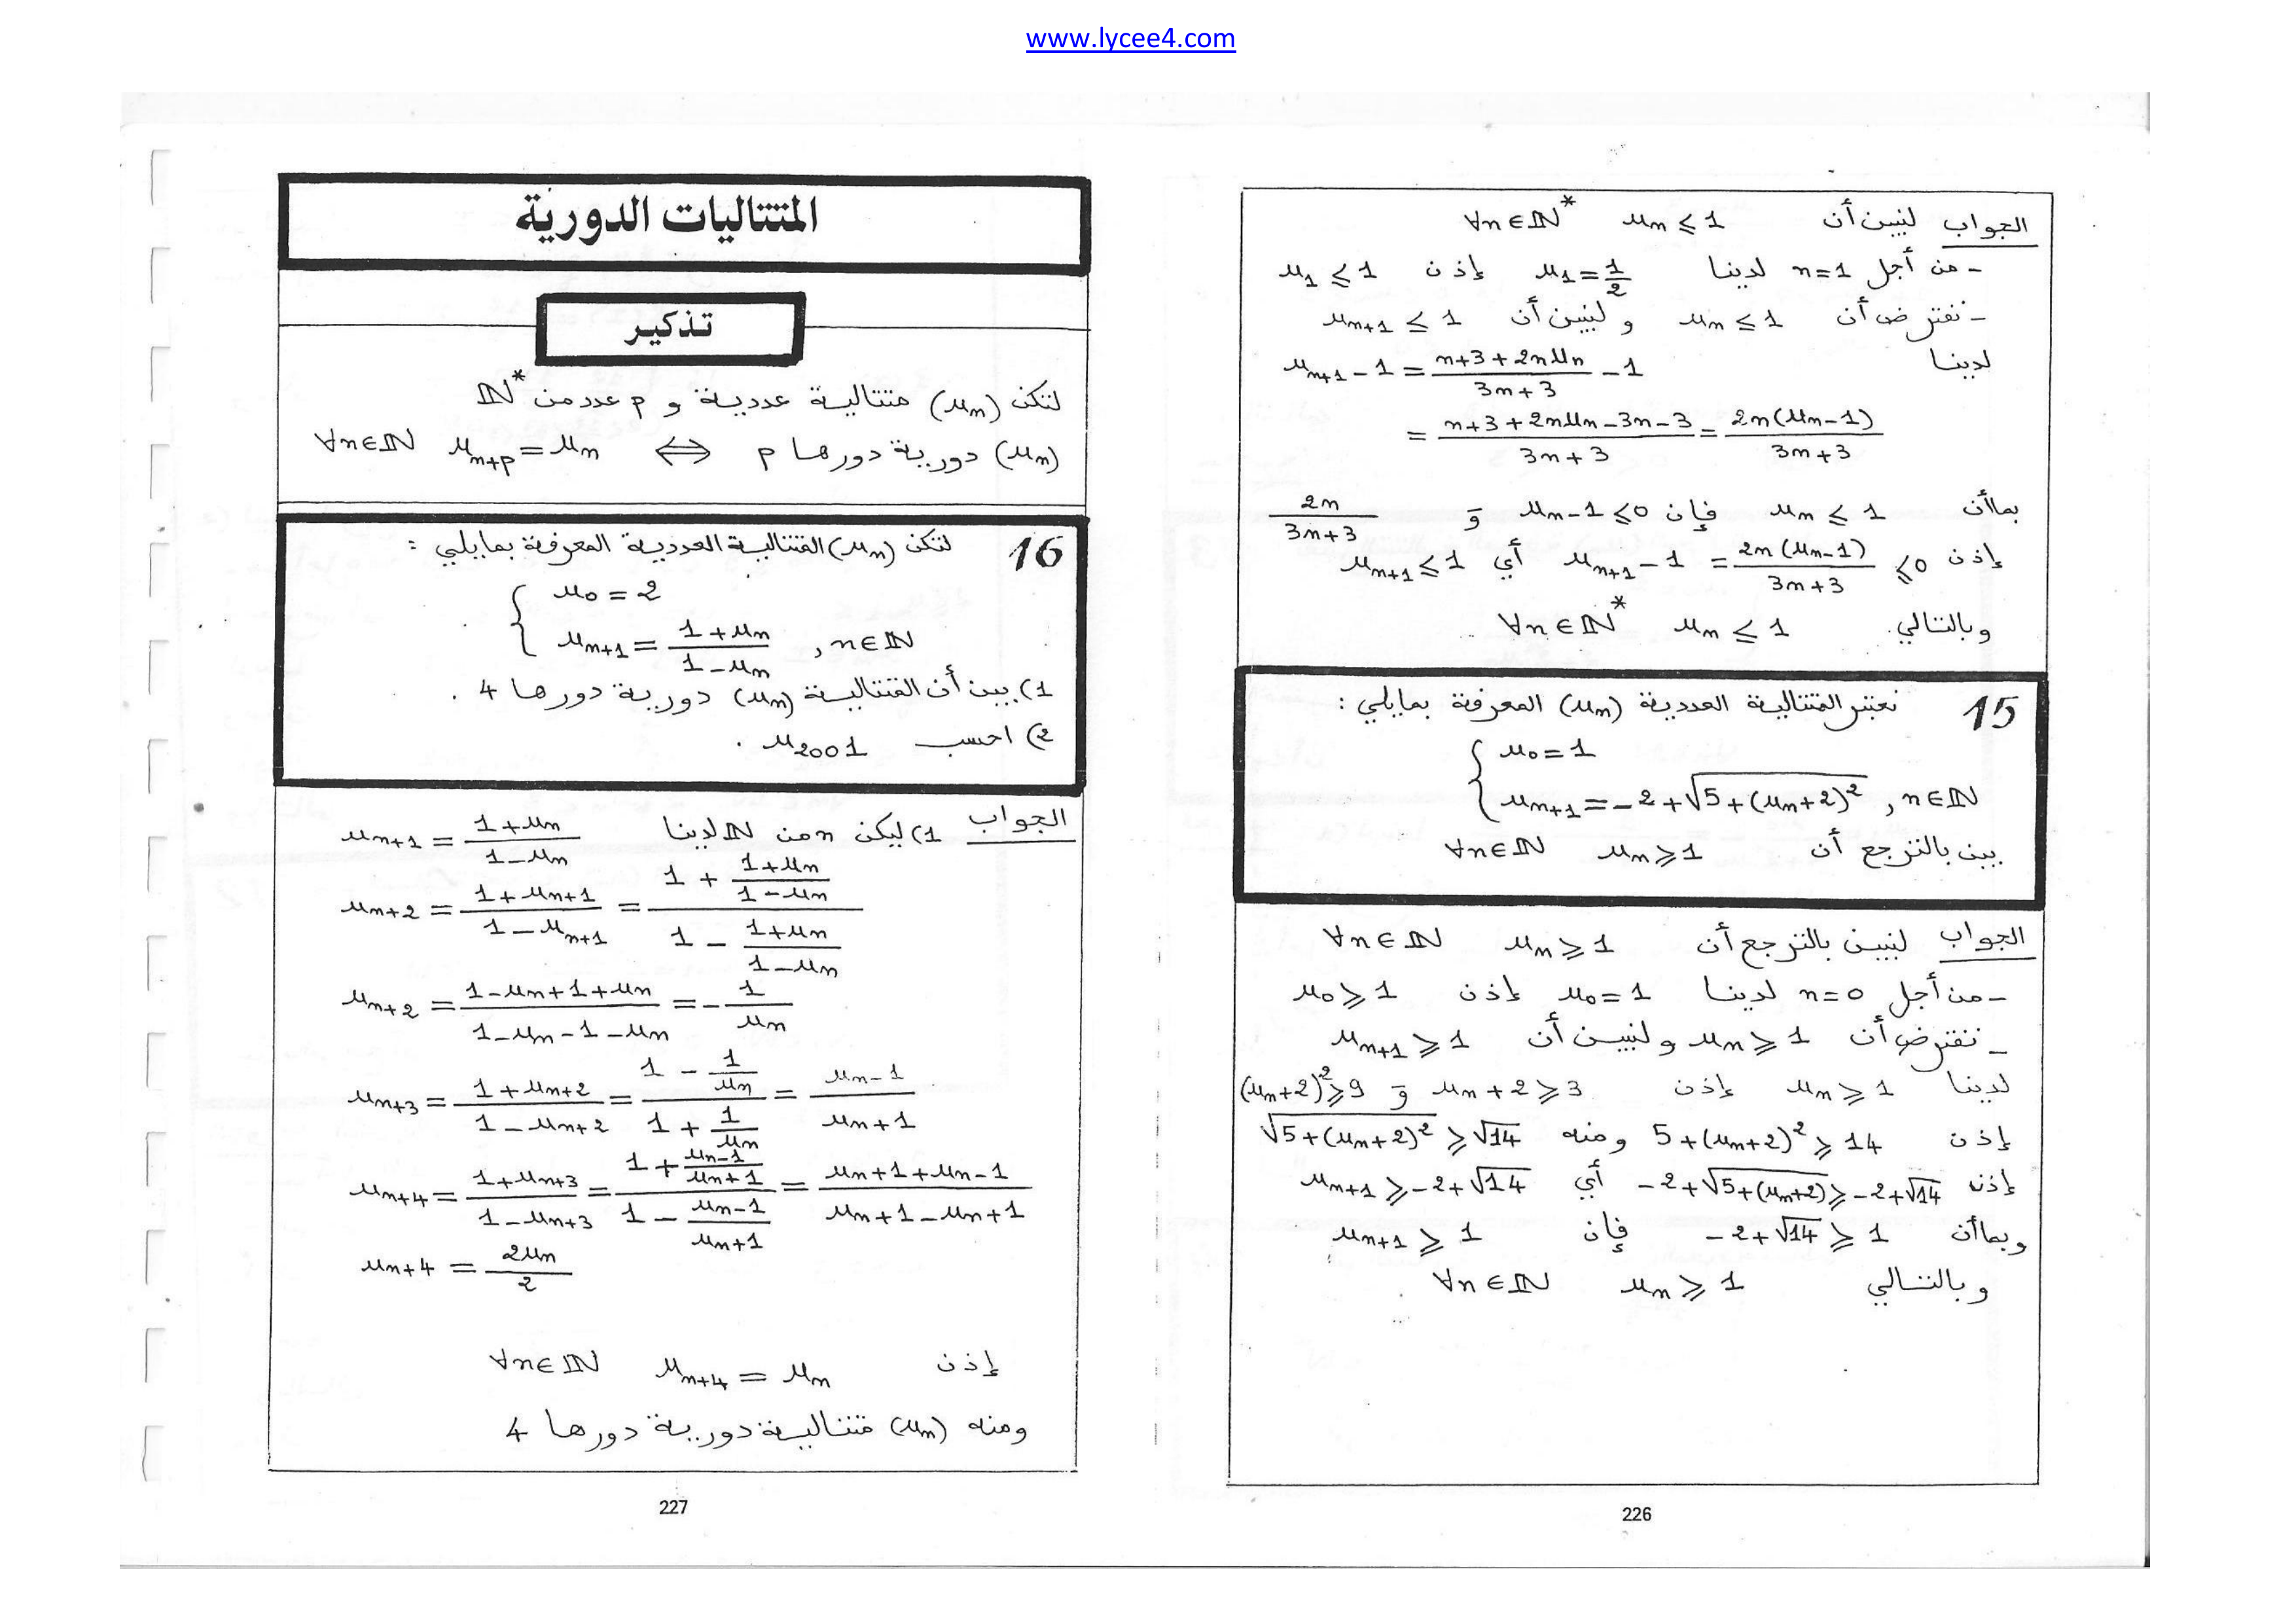 www.lycee4.com
الجواب لنبين أن u_n ≤ 1 ∀n∈ℕ*
- من أجل n=1 لدينا u_1 = 1/2 إذن u_1 ≤ 1
- نفترض أن u_n ≤ 1 و لنبين أن u_{n+1} ≤ 1
لدينا u_{n+1} - 1 = (n+3+2nu_n)/(3n+3) - 1
= (n+3+2nu_n-3n-3)/(3n+3) = 2n(u_n-1)/(3n+3)
بما أن u_n ≤ 1 فإن u_n-1 ≤ 0 و 2n/(3n+3)
إذن u_{n+1} - 1 = 2n(u_n-1)/(3n+3) ≤ 0 أي u_{n+1} ≤ 1
وبالتالي u_n ≤ 1 ∀n∈ℕ*
15 نعتبر المتتالية العددية (u_n) المعرفة بمايلي :
{ u_0 = 1
u_{n+1} = -2+√(5+(u_n+2)²) , n∈ℕ
بين بالترجع أن u_n ≥ 1 ∀n∈ℕ
الجواب لنبين بالترجع أن u_n ≥ 1 ∀n∈ℕ
- من أجل n=0 لدينا u_0 = 1 إذن u_0 ≥ 1
- نفترض أن u_n ≥ 1 و لنبين أن u_{n+1} ≥ 1
لدينا u_n ≥ 1 إذن u_n+2 ≥ 3 و (u_n+2)² ≥ 9
إذن 5+(u_n+2)² ≥ 14 ومنه √(5+(u_n+2)²) ≥ √14
إذن -2+√(5+(u_n+2)) ≥ -2+√14 أي u_{n+1} ≥ -2+√14
وبما أن -2+√14 ≥ 1 فإن u_{n+1} ≥ 1
وبالتالي u_n ≥ 1 ∀n∈ℕ
226
المتتاليات الدورية
تذكير
لتكن (u_n) متتالية عددية و p عدد من ℕ*
(u_n) دورية دورها p ⇔ u_{n+p} = u_n ∀n∈ℕ
16 لتكن (u_n) المتتالية العددية المعرفة بمايلي :
{ u_0 = 2
u_{n+1} = (1+u_n)/(1-u_n) , n∈ℕ
1) بين أن المتتالية (u_n) دورية دورها 4 .
2) احسب u_{2001} .
الجواب 1) ليكن n من ℕ لدينا u_{n+1} = (1+u_n)/(1-u_n)
u_{n+2} = (1+u_{n+1})/(1-u_{n+1}) = (1+(1+u_n)/(1-u_n))/(1-(1+u_n)/(1-u_n))
u_{n+2} = (1-u_n+1+u_n)/(1-u_n-1-u_n) = -1/u_n
u_{n+3} = (1+u_{n+2})/(1-u_{n+2}) = (1-1/u_n)/(1+1/u_n) = (u_n-1)/(u_n+1)
u_{n+4} = (1+u_{n+3})/(1-u_{n+3}) = (1+(u_n-1)/(u_n+1))/(1-(u_n-1)/(u_n+1)) = (u_n+1+u_n-1)/(u_n+1-u_n+1)
u_{n+4} = 2u_n/2
إذن u_{n+4} = u_n ∀n∈ℕ
ومنه (u_n) متتالية دورية دورها 4
227